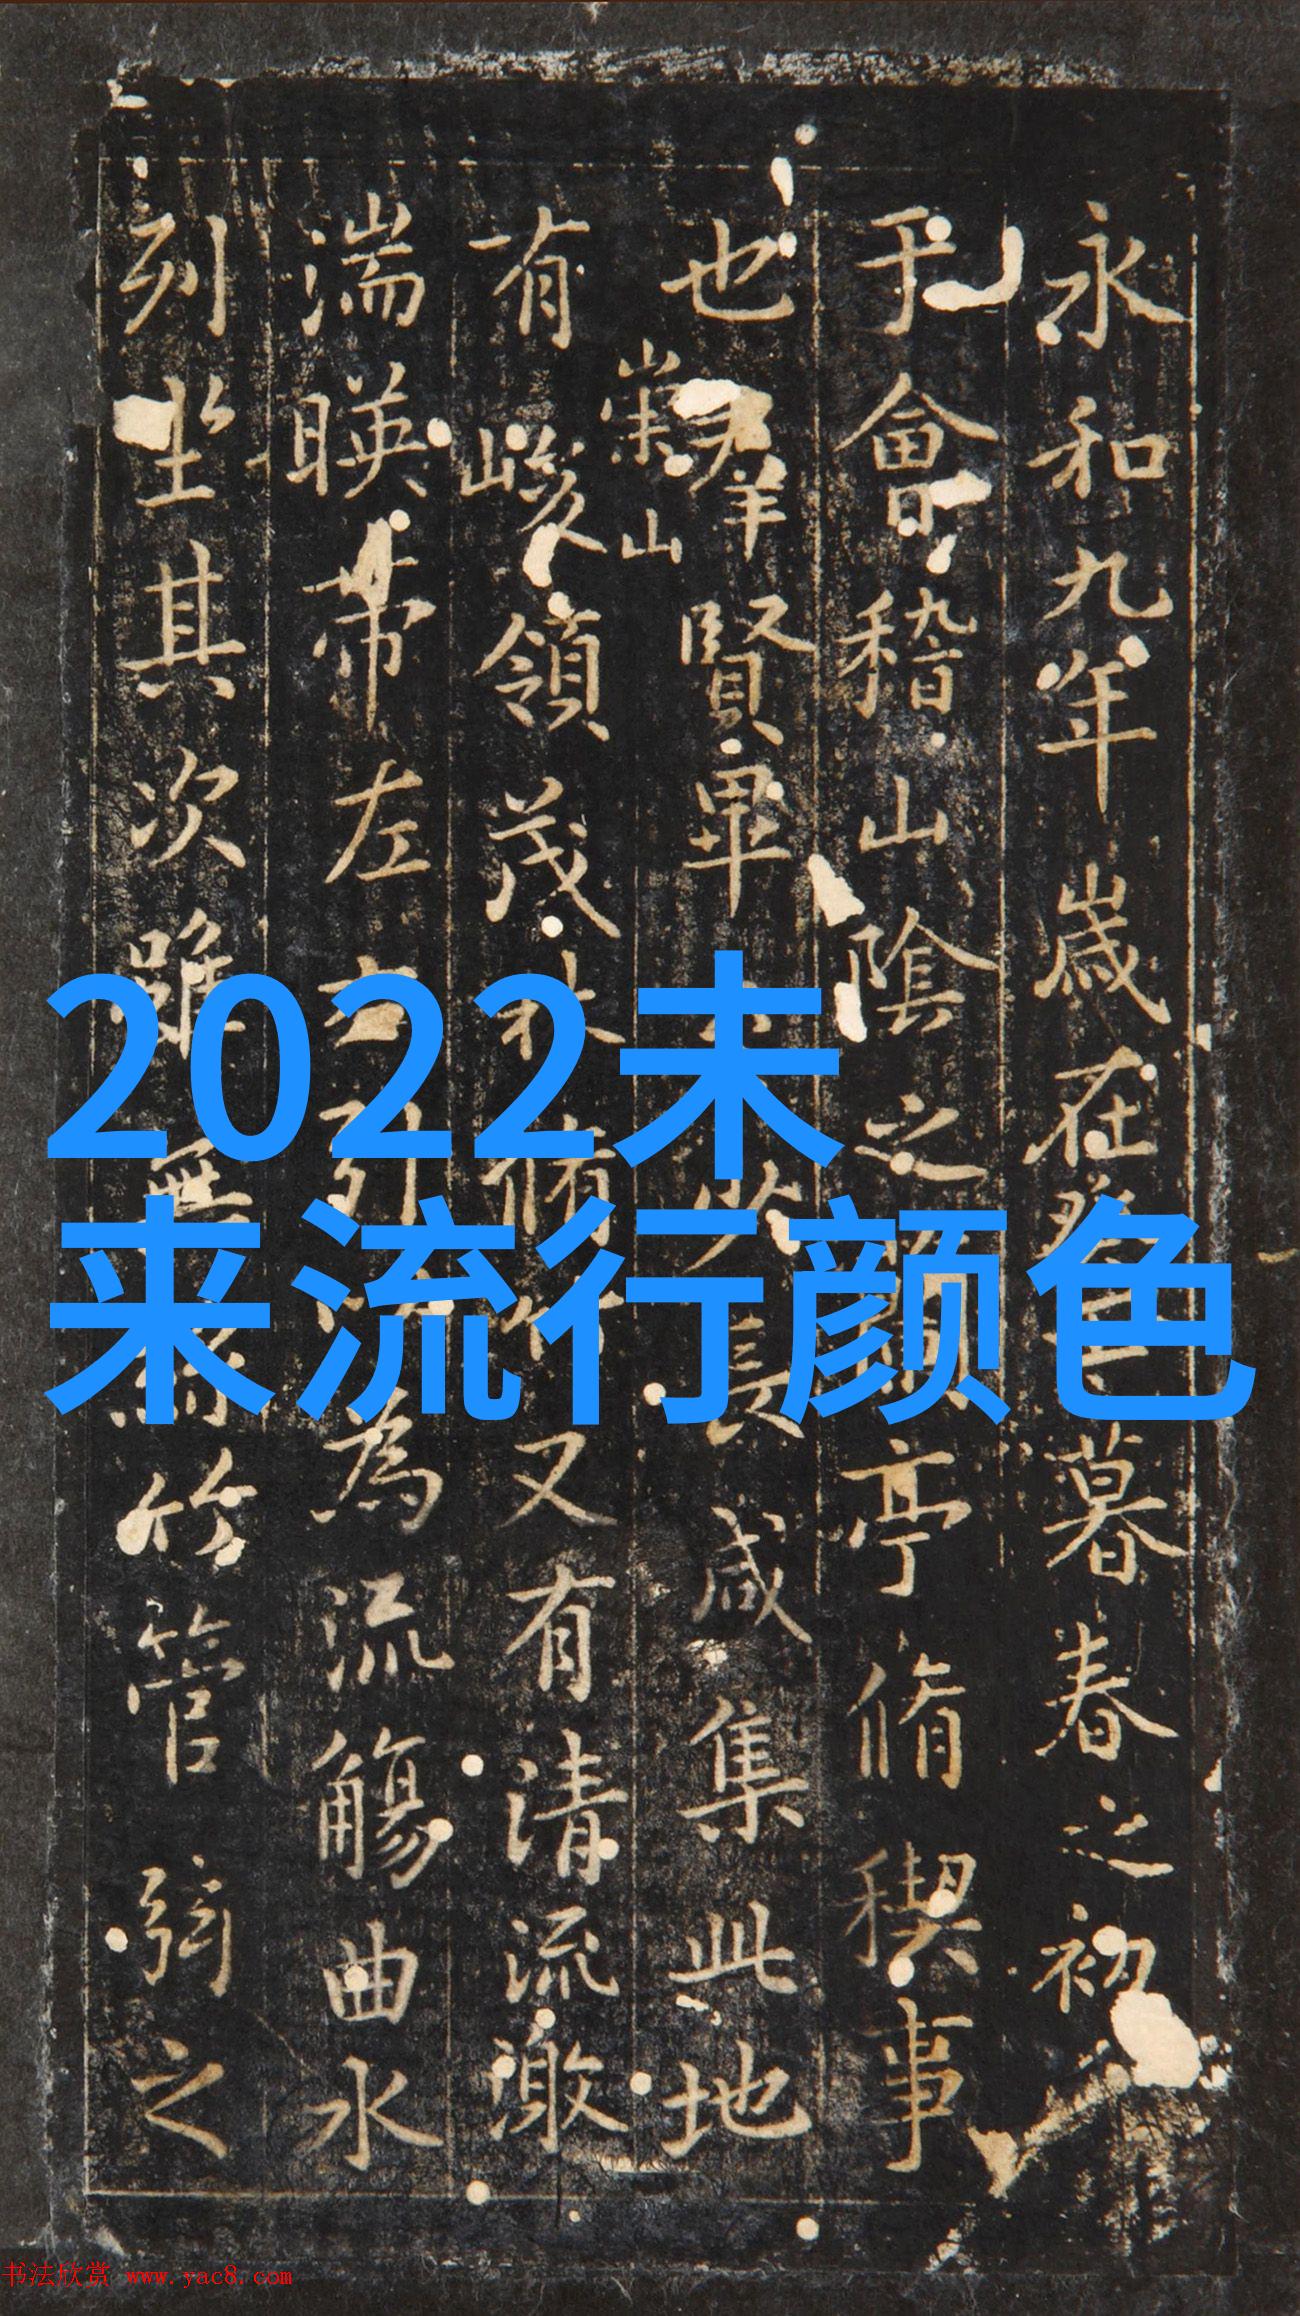 2022未
来流行颜色
永和九年歲在暮春之初
于會稽山陰之亭脩稧事
也羣賢畢少長咸集此地
崇山
有峻領茂林脩竹又有清流激
湍暎帶左右引為流觴曲水
列坐其次雖無絲竹管弦之
书法欣赏 www.yac8.com